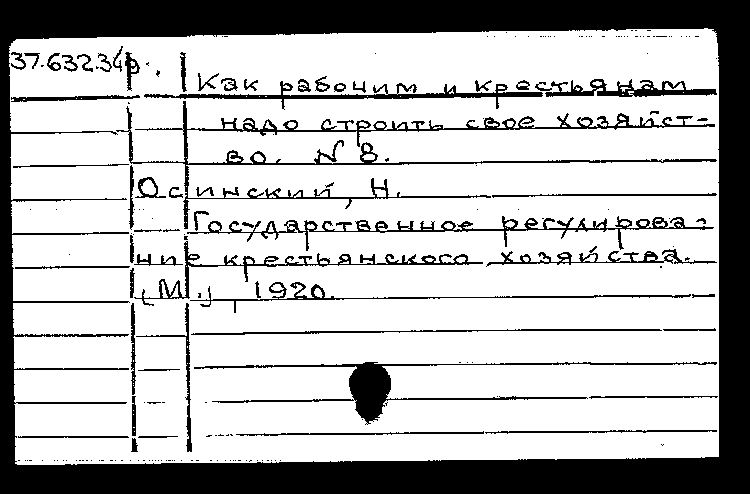 37.63234р.
Как рабочим и крестьянам
надо строить свое хозяйст-
во. N 8.
Осинский, Н.
Государственное регулирова-
ние крестьянского хозяйства.
[М.], 1920.